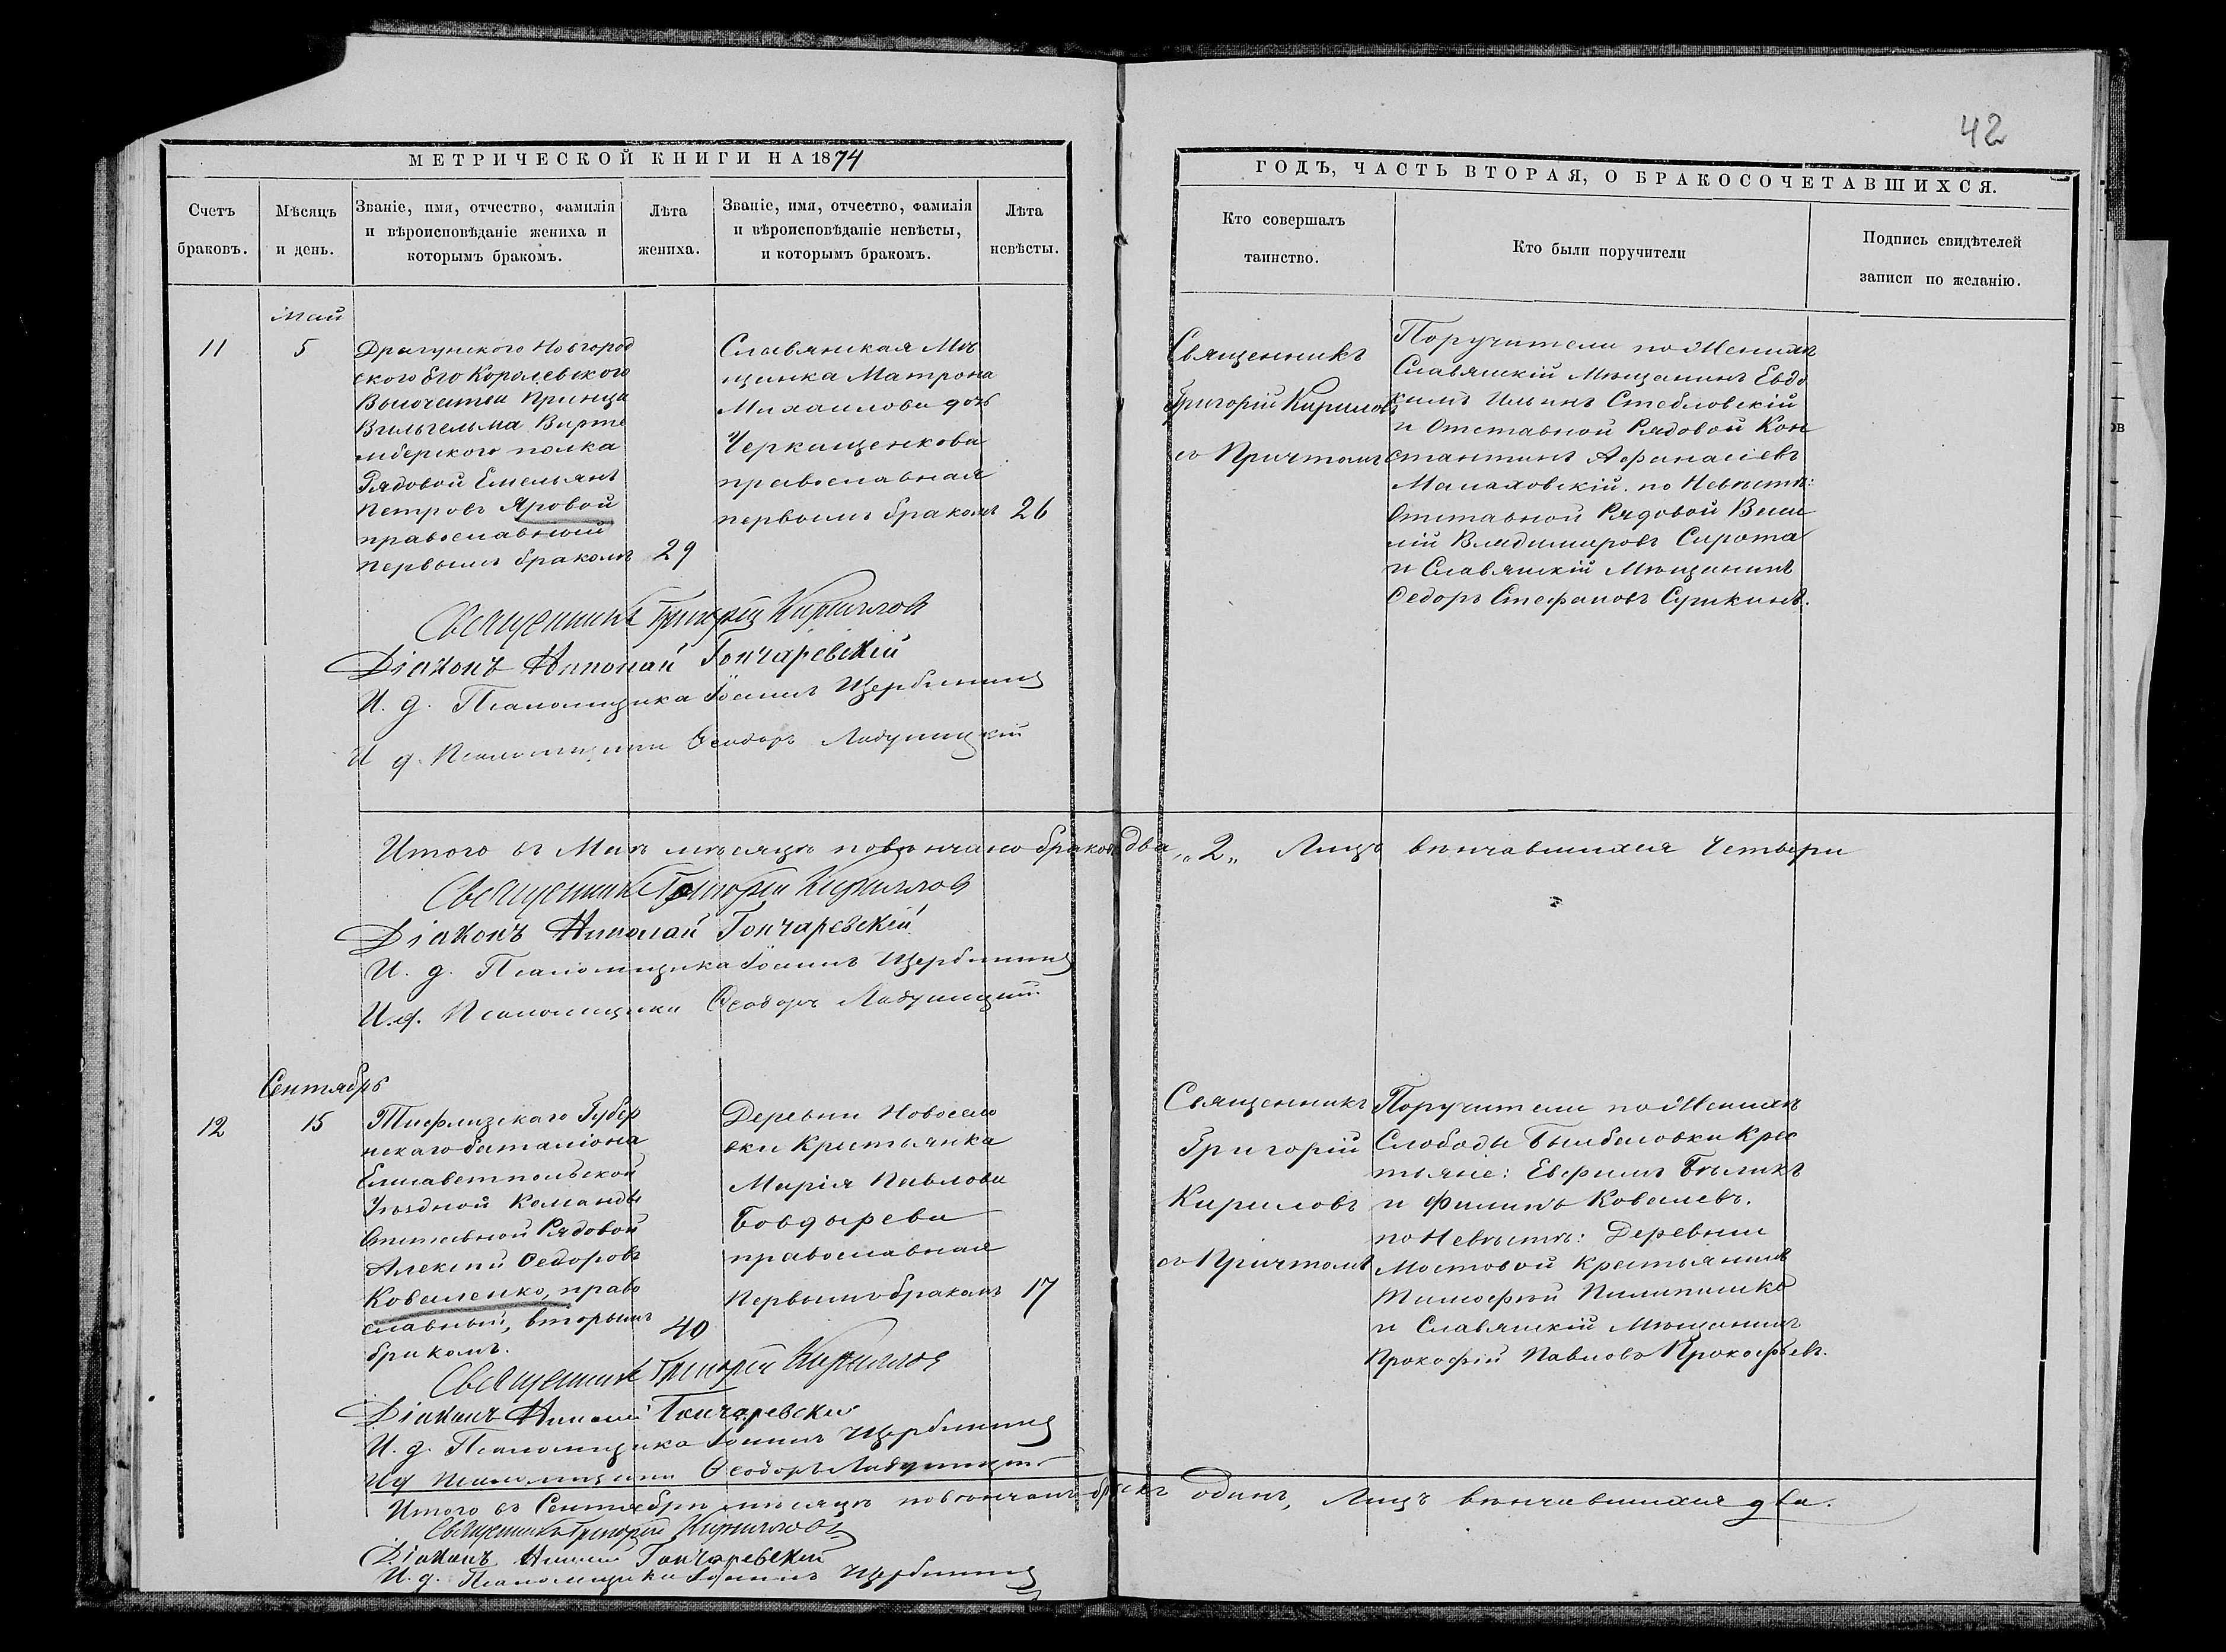 42
МЕТРИЧЕСКОЙ КНИГИ НА 1874
ГОДЪ, ЧАСТЬ ВТОРАЯ, О БРАКОСОЧЕТАВШИХСЯ.
Счетъ браковъ.
Мѣсяцъ и день.
Званіе, имя, отчество, фамилія
и вѣроисповѣданіе жениха и
которымъ бракомъ.
Лѣта жениха.
Званіе, имя, отчество, фамилія
и вѣроисповѣданіе невѣсты,
и которымъ бракомъ.
Лѣта невѣсты.
Кто совершалъ таинство.
Кто были поручители
Подпись свидѣтелей
записи по желанію.
Май
11
5
Драгунского Новгород
ского Его Королевского
Высочества Принца
Вильгельма Вирте
мберского полка
Рядовой Емельянъ
Петровъ Яровой
православный
первымъ бракомъ
29
Славянская Мѣ
щанка Матрона
Михаилова дочь
Черкащенкова
православная
первымъ бракомъ
26
Священникъ
Григорій Кириловъ
съ Причтомъ
Поручители по Женихѣ
Славянскій Мѣщанинъ Евдо
кимъ Ильинъ Стебловскій
и Отставной Рядовой Кон
стантинъ Афанасіевъ
Малаховскій. по Невѣстѣ:
Отставной Рядовой Васи
лій Владимировъ Сирота
и Славянскій Мѣщанинъ
Федоръ Стефановъ
Священникъ Григорій Кирилловъ
Діаконъ Николай Гончаревскій
И. д. Псаломщика Іоаннъ Щербининъ
И д. Псаломщика Ѳеодоръ
Итого въ Маѣ мѣсяцѣ повѣнчано браковъ два, „2„ Лицъ вѣнчавшихся четыри
Священникъ Григорій Кирилловъ
Діаконъ Николай Гончаревскій
И. д. Псаломщика Іоаннъ Щербининъ
И. д. Псаломщика Ѳеодоръ
Сентябрь
12
15
Тифлизскаго Губер
нскаго баталіона
Елисаветпольской
Уѣздной Команды
Отставной Рядовой
Алексѣй Федоровъ
Коваленко, право
славный, вторымъ
бракомъ.
40
Деревни Новосело
вки Крестьянка
Марія Павлова
Бовдырева
православная
Первымъ бракомъ
17
Священникъ
Григорій
Кириловъ
съ Причтомъ
Поручители по Женихѣ
Слободы Былбасовки Крес
тьяне: Евфимъ Бѣликъ
и Филипъ Ковалевъ.
по Невѣстѣ: Деревни
Мостовой Крестьянинъ
Тимофѣй Пилипенко
и Славянскій Мѣщанинъ
Прокофій Павловъ Прокофьевъ.
Священникъ Григорій Кирилловъ
Діаконъ Николай Гончаревскій
И. д. Псаломщика Іоаннъ Щербининъ
И д Псаломщика Ѳеодоръ
Итого въ Сентябрѣ мѣсяцѣ повѣнчанъ бракъ одинъ, Лицъ вѣнчавшихся два.
Священникъ Григорій Кирилловъ
Діаконъ Николай Гончаревскій
И. д. Псаломщика Іоаннъ Щербининъ